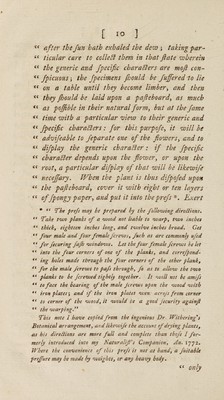 [ 10 ]
“ after the sun hath exhaled the dew; taking par-
“ ticular care to collect them in that state wherein
“ the generic and specific characters are most con-
“ spicuous; the specimens should be suffered to lie
“ on a table until they become limber, and then
“ they should be laid upon a pasteboard, as much
“ as possible in their natural form, but at the same
“ time with a particular view to their generic and
“ specific characters: for this purpose, it will be
“ adviseable to separate one of the flowers, and to
“ display the generic character: if the specific
“ character depends upon the flower, or upon the
“ root, a particular display of that will be likewise
“ necessary. When the plant is thus disposed upon
“ the pasteboard, cover it with eight or ten layers
“ of spongy paper, and put it into the press *. Exert
* “ The press may be prepared by the following directions.
“ Take two planks of a wood not liable to warp, two inches
“ thick, eighteen inches long, and twelve inches broad. Get
“ four male and four female screws, such as are commonly used
“ for securing sash windows. Let the four female screws be let
“ into the four corners of one of the planks, and correspond-
“ ing holes made through the four corners of the other plank,
“ for the male screws to pass through, so as to allow the two
“ planks to be screwed tightly together. It will not be amiss
“ to face the bearing of the male screws upon the wood with
“ iron plates; and if the iron plates went across from corner
“ to corner of the wood, it would be a good security against
“ the warping.”
This note I have copied from the ingenious Dr. Withering's
Botanical arrangement, and likewise the account of drying plants,
as his directions are more full and complete than those I for-
merly introduced into my Naturalist's Companion, An. 1772.
Where the convenience of this press is not at hand, a suitable
pressure may be made by weights, or any heavy body.
“ only